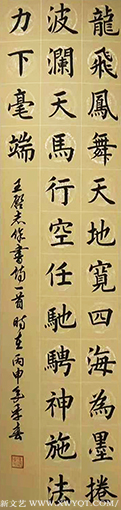 龍飛鳳舞天地寬四海為墨捲
波瀾天馬行空任馳騁神施法
力下毫端
書詩一首時在丙申年季春
新文艺（WWW.XWYQT.COM）